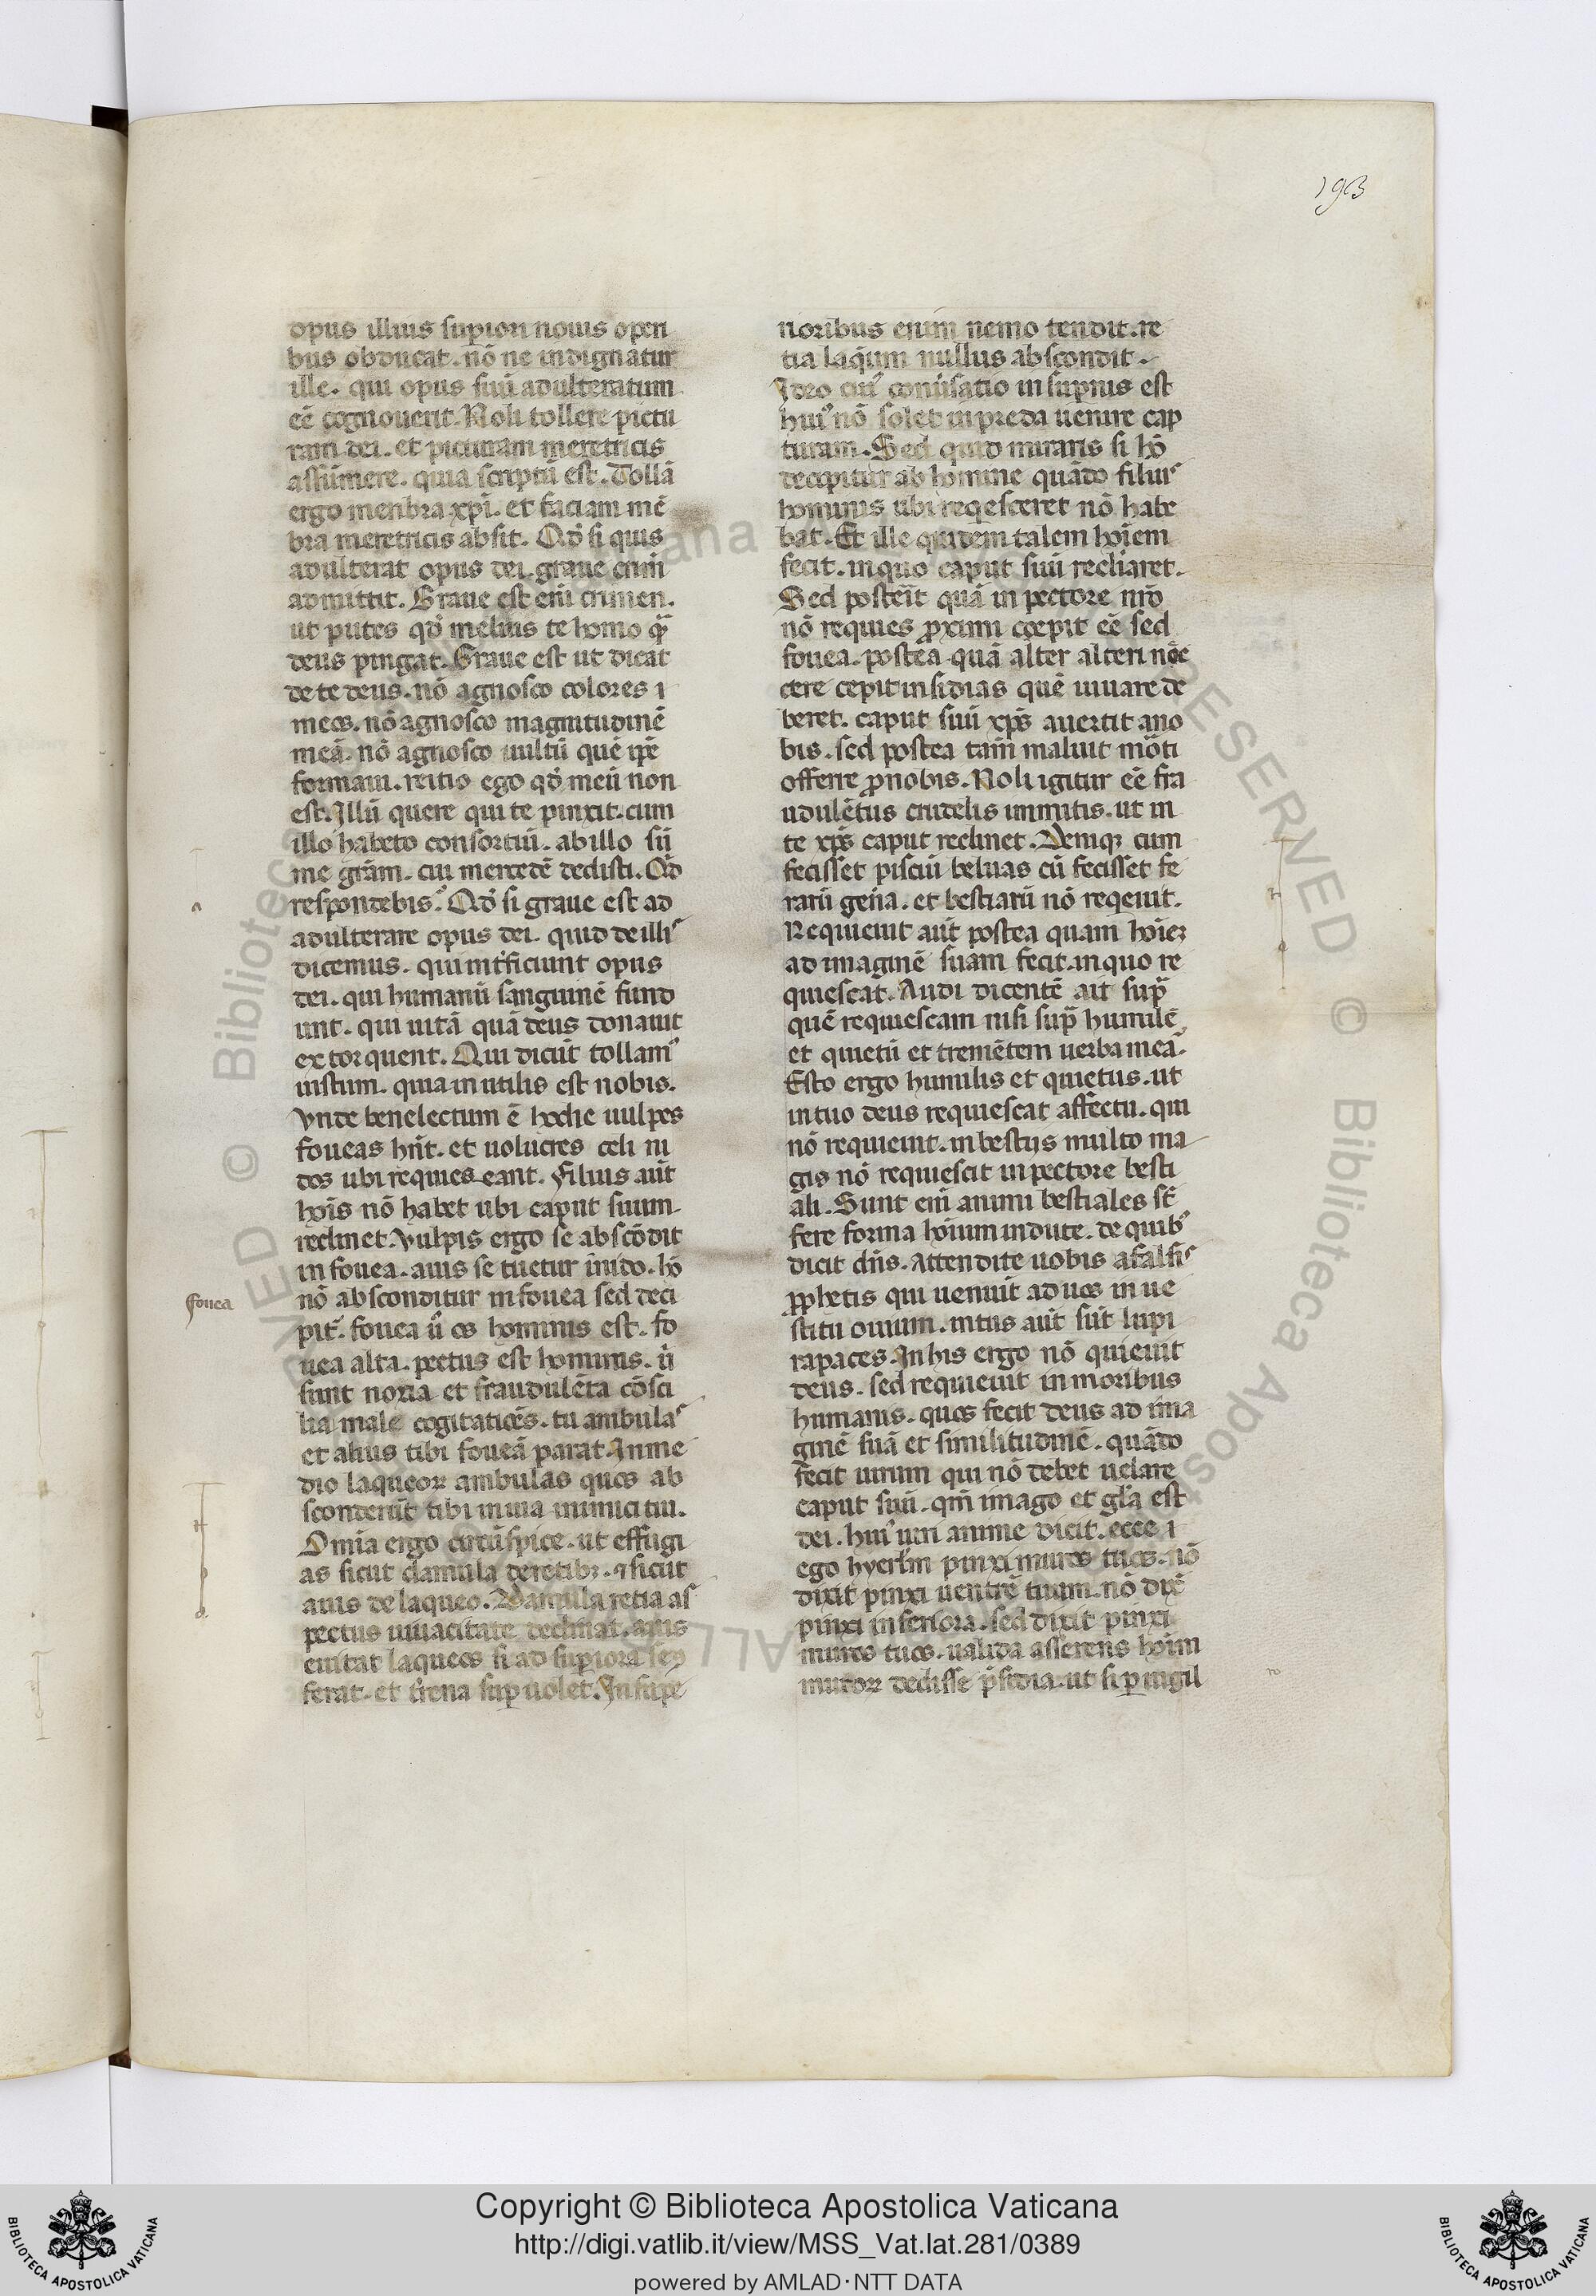 193
opus illius supiori nouis operi
bus obducat. nō ne indignatur
ille. qui opus suū adulteratum
eē cognouerit. Noli tollere pictu
ram dei. et picturam meretricis
assūmere. quia scriptū est. Tollā
ergo menbra xpī. et faciam mē
bra meretricis absit. Qđ si quis
adulterat opus dei. graue crimī
admittit. Graue est enī crimen.
ut putes qđ melius te homo q̄
deus pingat. Graue est ut dicat
de te deus. nō agnosco colores
meos. nō agnosco magnitudinē
meā. nō agnosco uultū quē ipē
formaui. reitio ego qđ meū non
est. Illū quere qui te pinxit. cum
illo habeto consortiū. ab illo sū
me grām. cui mercedē dedisti. Qđ
respondebis. Qđ si graue est ad
adulterare opus dei. quid de illis
dicemus. qui intficiunt opus
dei. qui humanū sanguinē fund
unt. qui uitā quā deus donauit
extorquent. Qui dicūt tollamꝰ
iustum. quia inutilis est nobis.
Vnde bene lectum ē hodie uulpes
foueas hn̄t. et uolucres celi ni
dos ubi requiescant. Filius aūt
hoīs nō habet ubi caput suum
reclinet. Vulpis ergo se abscōdit
in fouea. auis se tuetur inido. hō
fouea
nō absconditur in fouea sed deci
pit̄. fouea ū os hominis est. fo
uea alta. pectus est hominis. ū
sunt noxia et fraudulēta cōsi
lia male cogitatiōēs. tu ambulas
et alius tibi foueā parat. In me
dio laqueoꝝ ambulas quos ab
sconderūt tibi in uia inimici tui.
Omia ergo circūspice. ut effugi
as sicut damula de retibꝫ. ⁊ sicut
auis de laqueo. Damula retia as
pectus uiuacitate declinat. auis
euitat laqueos si ad supiora se
ferat. et trena sup uolet. In supe
rioribus enim nemo tendit. re
tia laq̄um nullus abscondit.
Ideo cuiꝰ conūsatio in supnis est
huiꝰ nō solet in preda uenire cap
turam. Sed quid miraris si hō
decipitur ab homine quādo filius
hominis ubi reqesceret nō habe
bat. Et ille quidem talem hoīem
fecit. in quo caput suū recliaret.
Sed posteāt quā in pectore nrō
nō requies proxum coepit eē sed
fouea. postea quā alter alteri nōc
cere cepit insidias quē iuuare de
beret. caput suū xpc̄ auertit a no
bis. sed postea tam̄ maluit mōti
offerre pro nobis. Noli igitur eē fra
udulētus crudelis inmitis. ut in
te xpc̄ caput reclinet. Deniqꝫ cum
fecisset pisciū beluas cū fecisset fe
rarū genēa. et bestiarū nō reqeuit.
Requieuit aūt postea quam hoīeꝫ
ad imaginē suam fecit. in quo re
quiescat̄. Audi dicentē ait sup̄
quē requiescam nisi sup̄ humilē
et quietū et tremētem uerba mea.
Esto ergo humilis et quietus. ut
in tuo deus requiescat affectu. qui
nō requieuit. in bestijs multo ma
gis nō requiescit in pectore besti
āli. Sunt enī animi bestiales st̄
fere forma hoīum indute. de quibꝰ
dicit dn̄s. Attendite uobis a falsis
prophetis qui ueniūt ad uos in ue
stitu ouium. intus aūt sūt lupi
rapaces. In his ergo nō quieuit
deus. sed requieuit in moribus
humanis. quos fecit deus ad ima
ginē suā et similitudinē. quādo
fecit uirum qui nō debet uelare
caput suū. qm̄ imago et gl̄a est
dei. huiꝰ uiri anime dicit. ecce
ego hyerl̄m pinxi muros tuos. nō
dixit pinxi uentrē tuum. nō dix̄
pinxi inferiora. sed dixit pinxi
muros tuos. ualida asserens hoīm
muroꝝ dedisse p̄sidia. ut si puigil
Copyright © Biblioteca Apostolica Vaticana
http://digi.vatlib.it/view/MSS_Vat.lat.281/0389
powered by AMLAD·NTT DATA
BIBLIOTECA APOSTOLICA VATICANA
BIBLIOTECA APOSTOLICA VATICANA